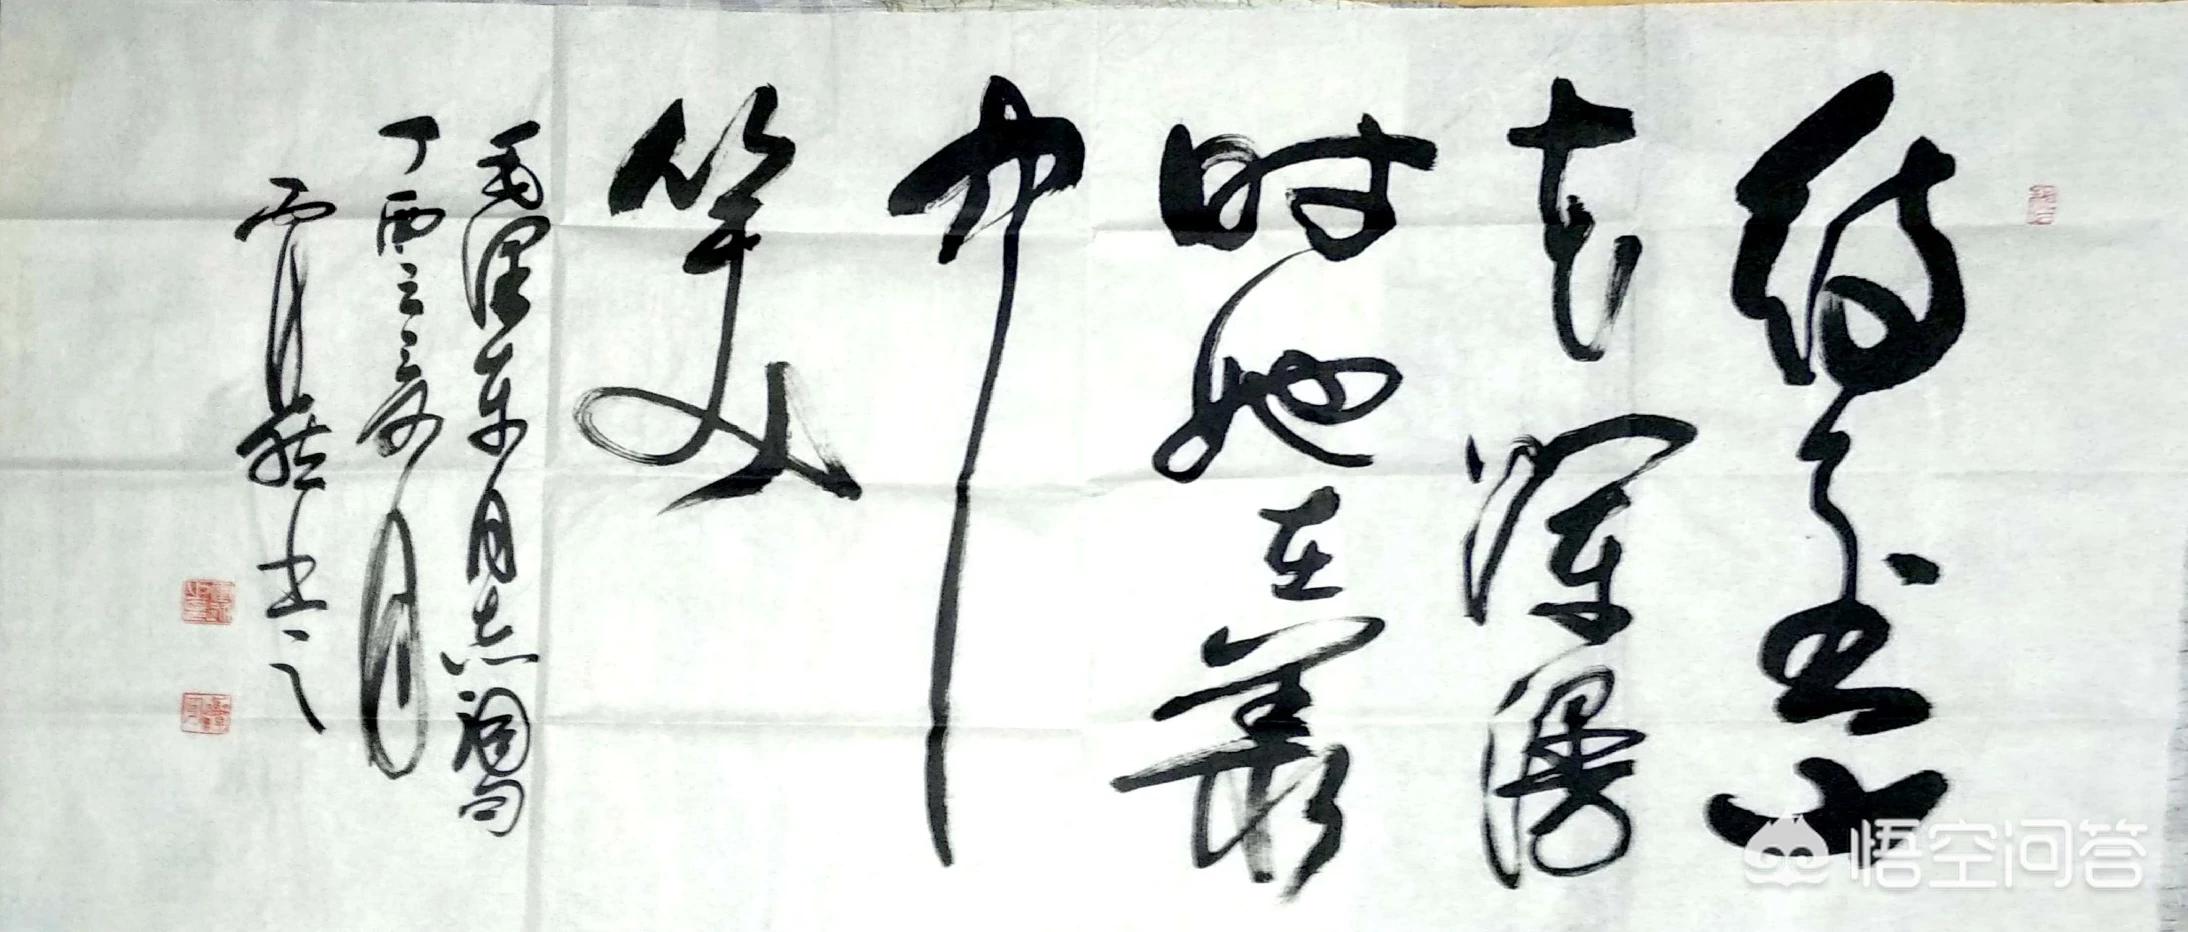 待到山
花爛漫
时她在叢
中
笑
毛泽东同志词句
丁酉之夏月
书之
悟空问答